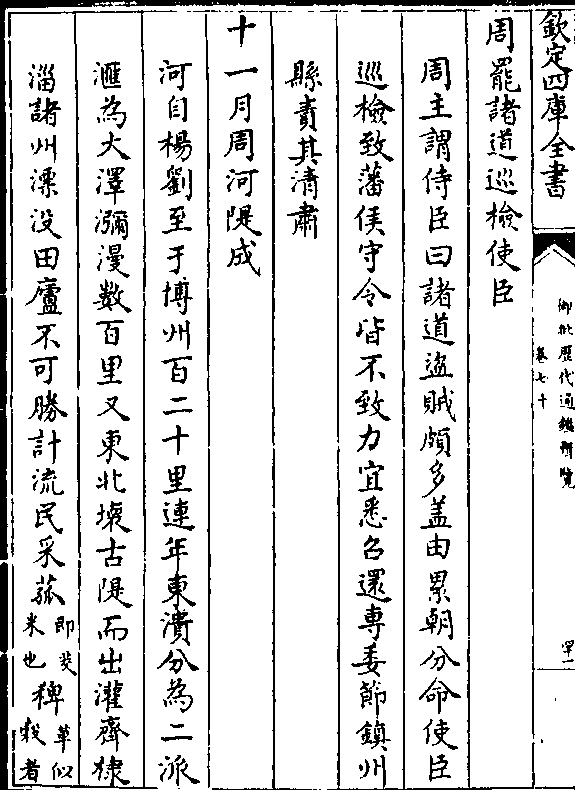 欽定四庫全書
御批歷代通鑑輯覽
卷七十
罕一
周罷諸道巡檢使臣
周主謂侍臣曰諸道盜賊頗多盖由累朝分命使臣
巡檢致藩侯守令皆不致力宜悉召還專委節鎮州
縣責其清肅
十一月周河隄成
河自楊劉至于博州百二十里連年東潰分為二派
滙為大澤瀰漫數百里又東北壞古隄而出灌齊棣
淄諸州漂沒田廬不可勝計流民采菰即茭米也稗草似穀者